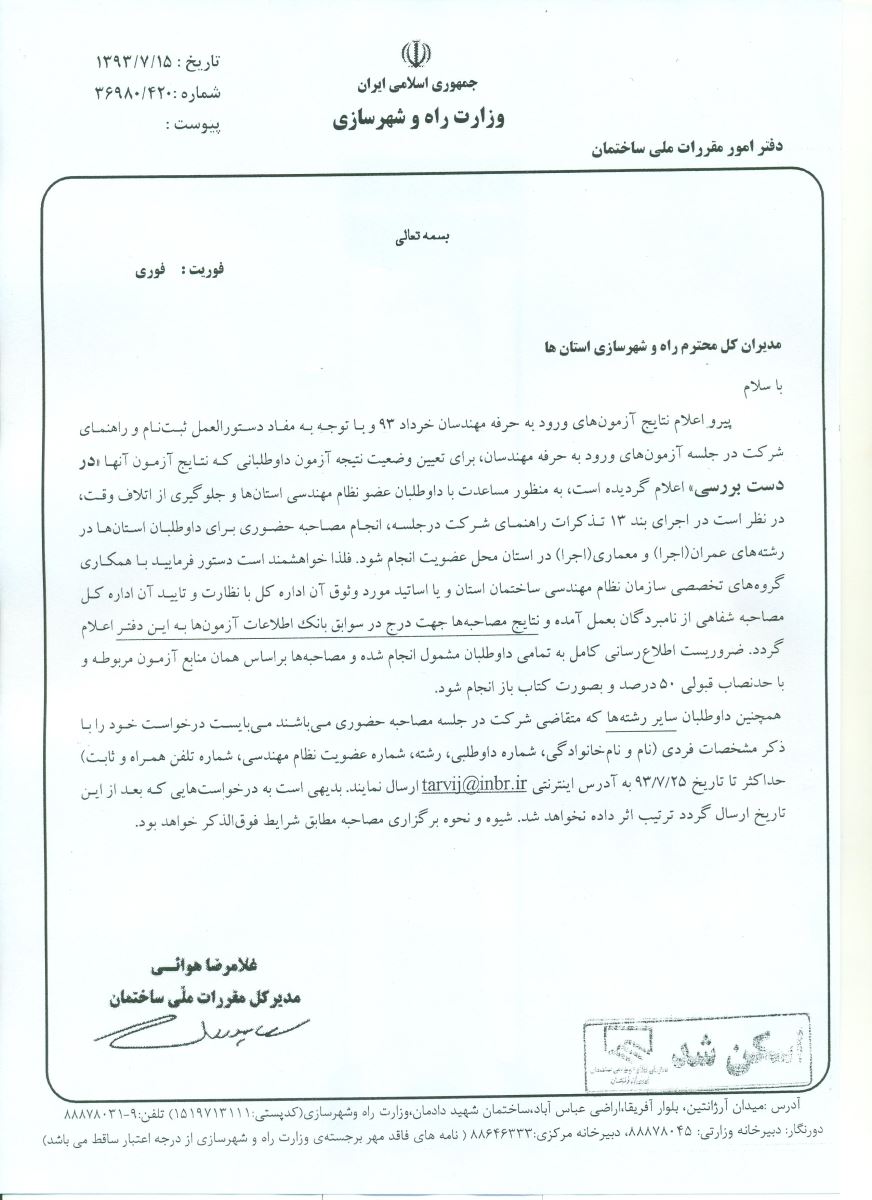 جمهوری اسلامی ایران
وزارت راه و شهرسازی
تاریخ : ۱۳۹۳/۷/۱۵
شماره :۳۶۹۸۰/۴۲۰
پیوست :
دفتر امور مقررات ملی ساختمان
بسمه تعالی
فوریت : فوری
مدیران کل محترم راه و شهرسازی استان ها
با سلام
پیرو اعلام نتایج آزمون‌های ورود به حرفه مهندسان خرداد ۹۳ و با توجه به مفاد دستورالعمل ثبت‌نام و راهنمای
شرکت در جلسه آزمون‌های ورود به حرفه مهندسان، برای تعیین وضعیت نتیجه آزمون داوطلبانی که نتایج آزمون آنها «در
دست بررسی» اعلام گردیده است، به منظور مساعدت با داوطلبان عضو نظام مهندسی استان‌ها و جلوگیری از اتلاف وقت،
در نظر است در اجرای بند ۱۳ تذکرات راهنمای شرکت درجلسه، انجام مصاحبه حضوری برای داوطلبان استان‌ها در
رشته‌های عمران(اجرا) و معماری(اجرا) در استان محل عضویت انجام شود. فلذا خواهشمند است دستور فرمایید با همکاری
گروه‌های تخصصی سازمان نظام مهندسی ساختمان استان و یا اساتید مورد وثوق آن اداره کل با نظارت و تایید آن اداره کل
مصاحبه شفاهی از نامبردگان بعمل آمده و نتایج مصاحبه‌ها جهت درج در سوابق بانک اطلاعات آزمون‌ها به این دفتر اعلام
گردد. ضروریست اطلاع‌رسانی کامل به تمامی داوطلبان مشمول انجام شده و مصاحبه‌ها براساس همان منابع آزمون مربوطه و
با حدنصاب قبولی ۵۰ درصد و بصورت کتاب باز انجام شود.
همچنین داوطلبان سایر رشته‌ها که متقاضی شرکت در جلسه مصاحبه حضوری می‌باشند می‌بایست درخواست خود را با
ذکر مشخصات فردی (نام و نام‌خانوادگی، شماره داوطلبی، رشته، شماره عضویت نظام مهندسی، شماره تلفن همراه و ثابت)
حداکثر تا تاریخ ۹۳/۷/۲۵ به آدرس اینترنتی tarvij@inbr.ir ارسال نمایند. بدیهی است به درخواست‌هایی که بعد از این
تاریخ ارسال گردد ترتیب اثر داده نخواهد شد. شیوه و نحوه برگزاری مصاحبه مطابق شرایط فوق‌الذکر خواهد بود.
غلامرضا هوائی
مدیرکل مقررات ملّی ساختمان
اسکن شد
آدرس :میدان آرژانتین، بلوار آفریقا،اراضی عباس آباد،ساختمان شهید دادمان،وزارت راه وشهرسازی(کدپستی:۱۵۱۹۷۱۳۱۱۱) تلفن:۹-۸۸۸۷۸۰۳۱
دورنگار: دبیرخانه وزارتی: ۸۸۸۷۸۰۴۵، دبیرخانه مرکزی:۸۸۶۴۶۳۳۳ ( نامه های فاقد مهر برجسته‌ی وزارت راه و شهرسازی از درجه اعتبار ساقط می باشد)